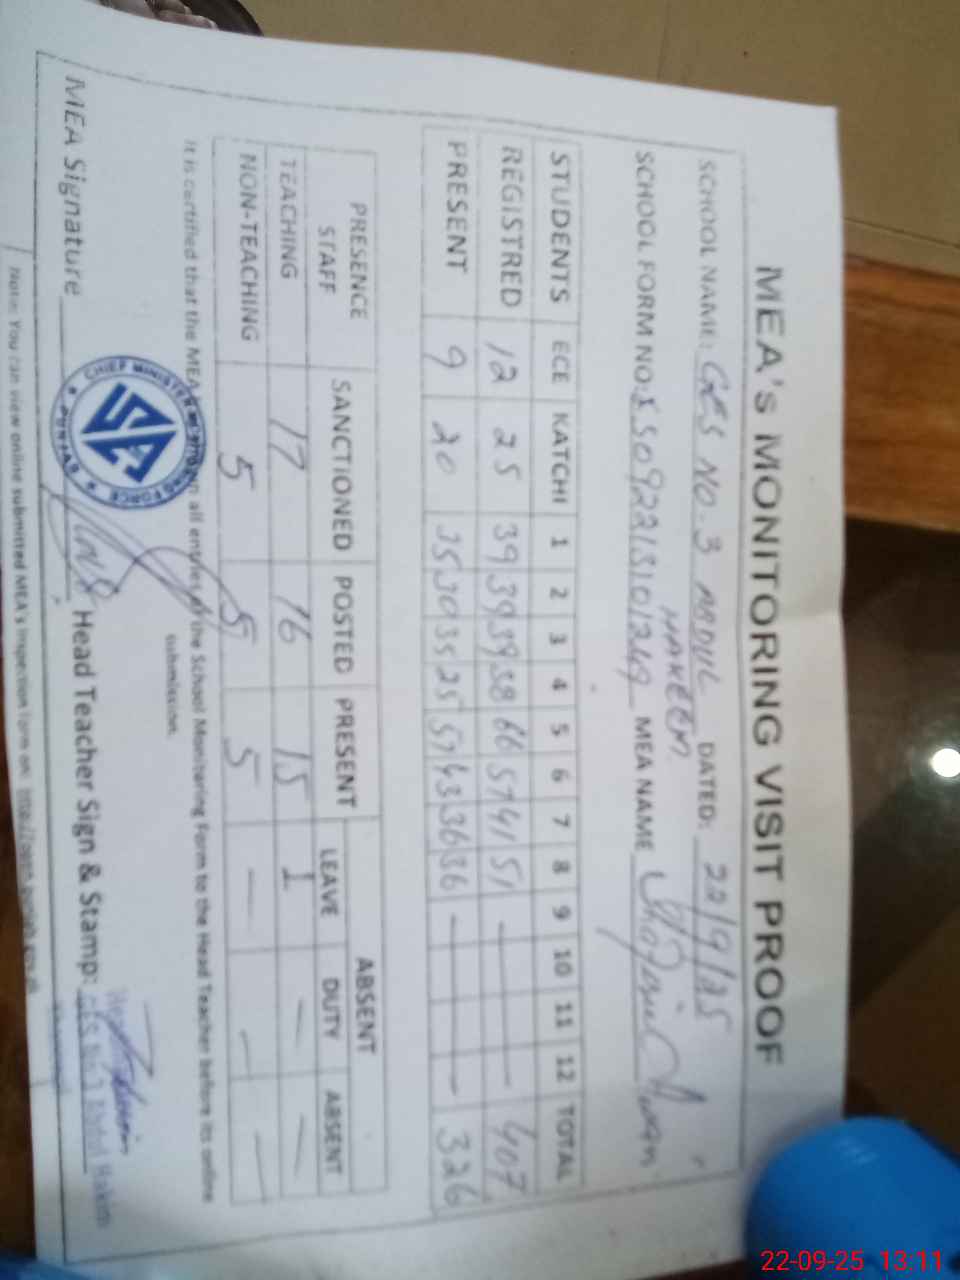 MEA's MONITORING VISIT PROOF
SCHOOL NAME: GES NO. 3 ABDUL HAKEEM DATED: 22/9/25
SCHOOL FORM NO: MEA NAME
STUDENTS ECE KATCHI 1 2 3 4 5 6 7 8 9 10 11 12 TOTAL
REGISTRED 12 25 39 39 39 38 66 57 41 51 — 407
PRESENT 9 20 35 30 35 25 57 43 36 36 — 326
PRESENCE STAFF SANCTIONED POSTED PRESENT ABSENT
LEAVE DUTY ABSENT
TEACHING 17 16 15 1 — —
NON-TEACHING 5 5 5 — — —
It is certified that the MEA all entries the School Monitoring Form to the Head Teacher before its online
submission.
MEA Signature Head Teacher Sign & Stamp: GES No.3 Abdul Hakim
CHIEF MINISTER'S FORCE
PUNJAB
Note: You can view online submitted MEA's inspection form on:
22-09-25 13:11